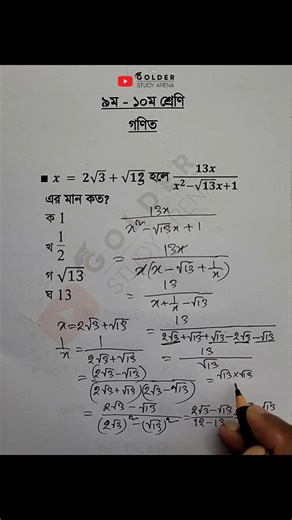 GOLDER
STUDY ARENA
৯ম - ১০ম শ্রেণি
গণিত
■ x = 2√3 + √12 হলে 13x / (x² − √13x + 1)
এর মান কত?
ক 1
খ 1/2
গ √13
ঘ 13
13x / (x² − √13x + 1)
= 13x / x(x − √13 + 1/x)
= 13 / (x + 1/x − √13)
x = 2√3 + √13
= 13 / (2√3 + √13 + √13 − 2√3 − √13)
1/x = 1 / (2√3 + √13)
= 13 / √13
= (2√3 − √13) / (2√3 + √13)(2√3 − √13)
= √13 × √13
= (2√3 − √13) / ((2√3)² − (√13)²) = (2√3 − √13) / (12 − 13)